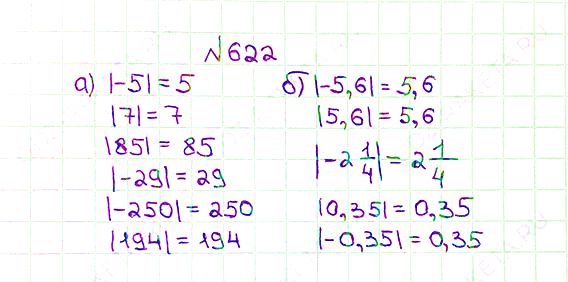 №622
а) |-5| = 5
|7| = 7
|85| = 85
|-29| = 29
|-250| = 250
|194| = 194
б) |-5,6| = 5,6
|5,6| = 5,6
|-2 1/4| = 2 1/4
|0,35| = 0,35
|-0,35| = 0,35